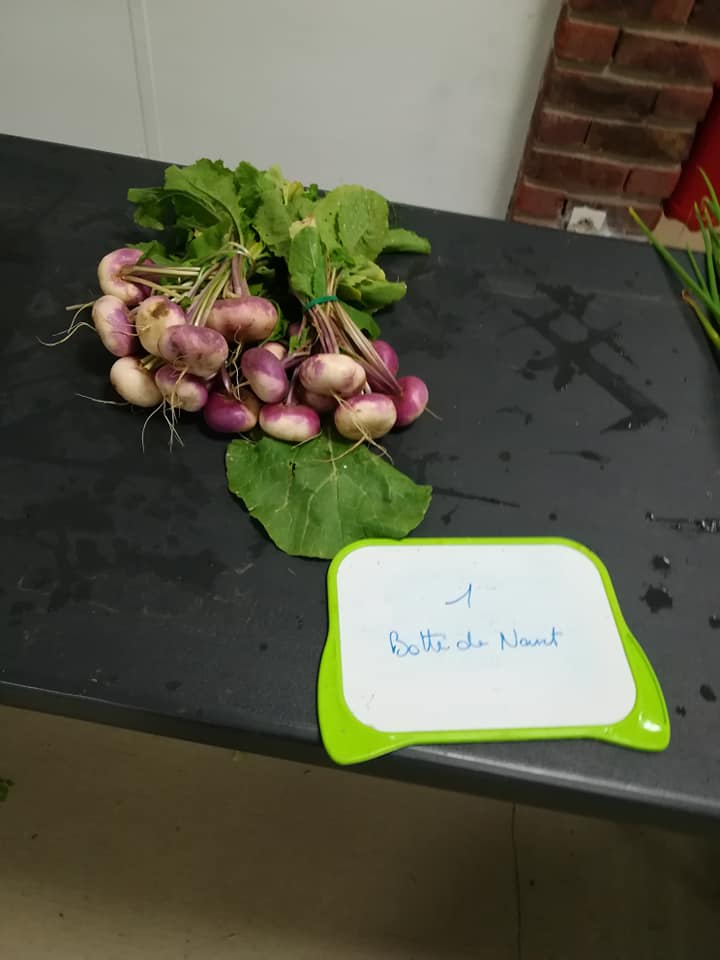 1
Botte de Navet